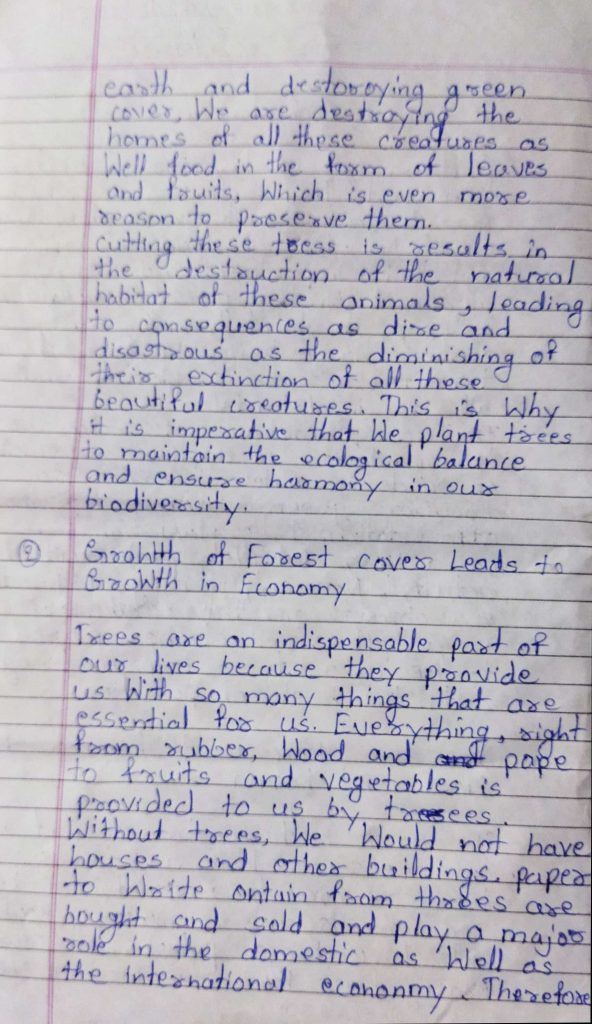 earth and destoroying green
cover, We are destroying the
homes of all these creatures as
Well food in the form of leaves
and fruits, Which is even more
reason to preserve them.
Cutting these tress is results in
the destruction of the natural
habitat of these animals, leading
to consequences as dire and
disastrous as the diminishing of
their extinction of all these
beautiful creatures. This is Why
it is imperative that We plant trees
to maintain the ecological balance
and ensure harmony in our
biodiversity.
② Growhth of Forest cover Leads to
Growth in Economy
Trees are an indispensable part of
our lives because they provide
us With so many things that are
essential for us. Everything, right
from rubber, Wood and and pape
to fruits and vegetables is
provided to us by treees.
Without trees, We Would not have
houses and other buildings. paper
to Write ontain from threes are
bought and sold and play a major
role in the domestic as Well as
the international econonmy. Therefore